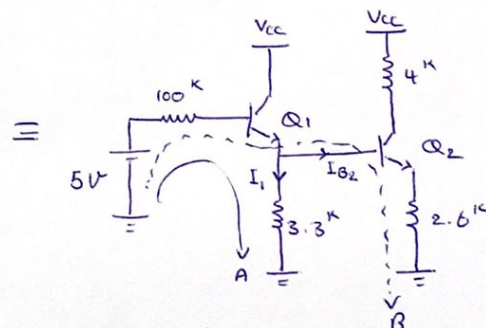 Vcc
Vcc
4K
100K
Q1
≡
Q2
5V
I1
IB2
3.3K
2.6K
A
B